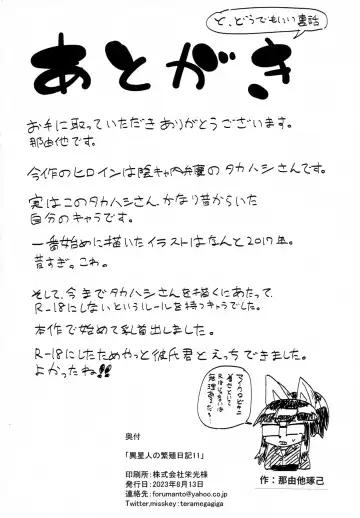 と、どうでもいい裏話
あとがき
お手に取っていただきありがとうございます。
那由他です。
今作のヒロインは陰キャ内弁慶のタカハシさんです。
実はこのタカハシさん、かなり昔からいた
自分のキャラです。
一番始めに描いたイラストはなんと2017年。
昔すぎ。こわ。
そして、今までタカハシさんを描くにあたって、
R-18にしないというルールを持つキャラでした。
本作で始めて乳首出しました。
R-18にしたためやっと彼氏君とえっちできました。
よかったね!!
奥付
「異星人の繁殖日記11」
印刷所：株式会社栄光様
発行日：2023年8月13日
連絡先：forumanto@yahoo.co.jp
Twitter.misskey：teramegagiga
作：那由他琢己